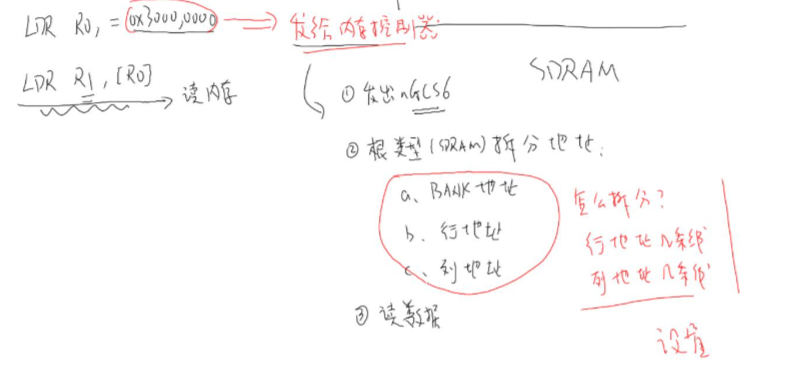 LDR R0, =0x3000,0000 => 发给内存控制器
LDR R1, [R0] → 读内存
SDRAM
① 发出nGCS6
② 根类型(SDRAM)拆分地址:
a、BANK地址
b、行地址
c、列地址
怎么拆分?
行地址几条线
列地址几条线
设置
③ 读数据